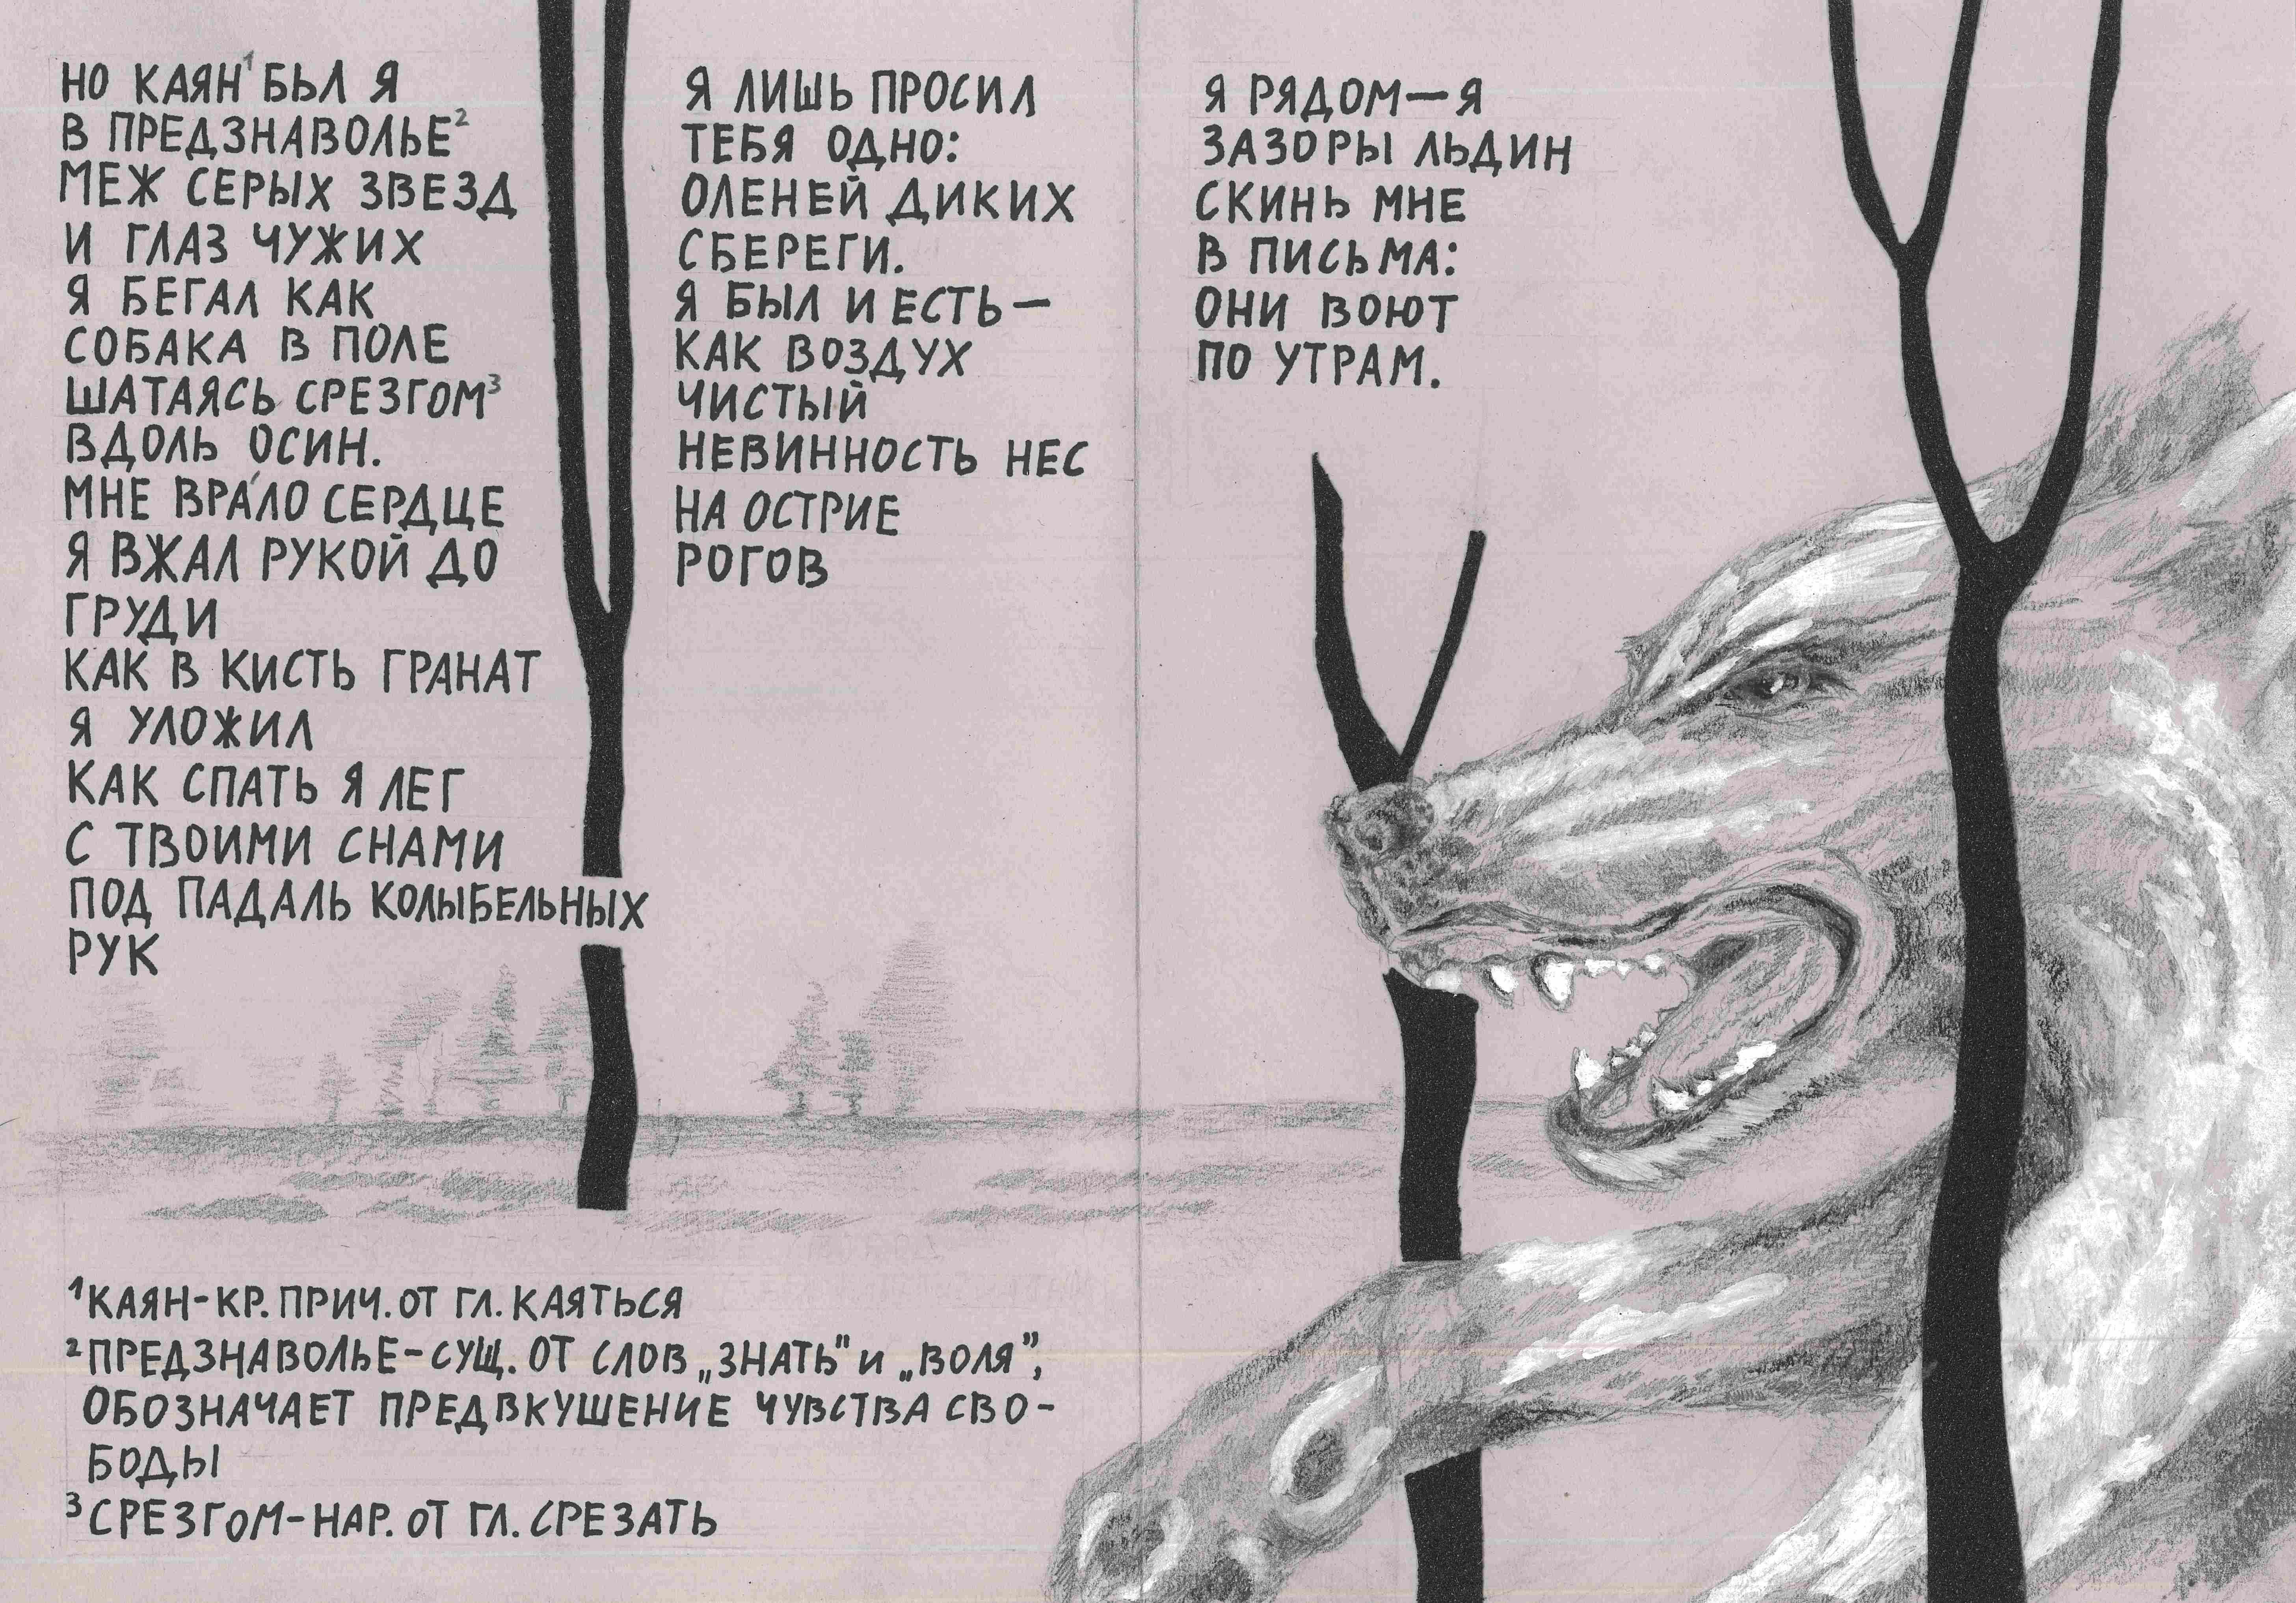 НО КАЯН¹ БЫЛ Я
В ПРЕДЗНАВОЛЬЕ²
МЕЖ СЕРЫХ ЗВЕЗД
И ГЛАЗ ЧУЖИХ
Я БЕГАЛ КАК
СОБАКА В ПОЛЕ
ШАТАЯСЬ СРЕЗГОМ³
ВДОЛЬ ОСИН.
МНЕ ВРА́ЛО СЕРДЦЕ
Я ВЖАЛ РУКОЙ ДО
ГРУДИ
КАК В КИСТЬ ГРАНАТ
Я УЛОЖИЛ
КАК СПАТЬ Я ЛЕГ
С ТВОИМИ СНАМИ
ПОД ПАДАЛЬ КОЛЫБЕЛЬНЫХ
РУК
Я ЛИШЬ ПРОСИЛ
ТЕБЯ ОДНО:
ОЛЕНЕЙ ДИКИХ
СБЕРЕГИ.
Я БЫЛ И ЕСТЬ—
КАК ВОЗДУХ
ЧИСТЫЙ
НЕВИННОСТЬ НЕС
НА ОСТРИЕ
РОГОВ
Я РЯДОМ—Я
ЗАЗОРЫ ЛЬДИН
СКИНЬ МНЕ
В ПИСЬМА:
ОНИ ВОЮТ
ПО УТРАМ.
¹КАЯН-КР. ПРИЧ. ОТ ГЛ. КАЯТЬСЯ
²ПРЕДЗНАВОЛЬЕ-СУЩ. ОТ СЛОВ „ЗНАТЬ" И „ВОЛЯ",
ОБОЗНАЧАЕТ ПРЕДВКУШЕНИЕ ЧУВСТВА СВО-
БОДЫ
³СРЕЗГОМ-НАР. ОТ ГЛ. СРЕЗАТЬ